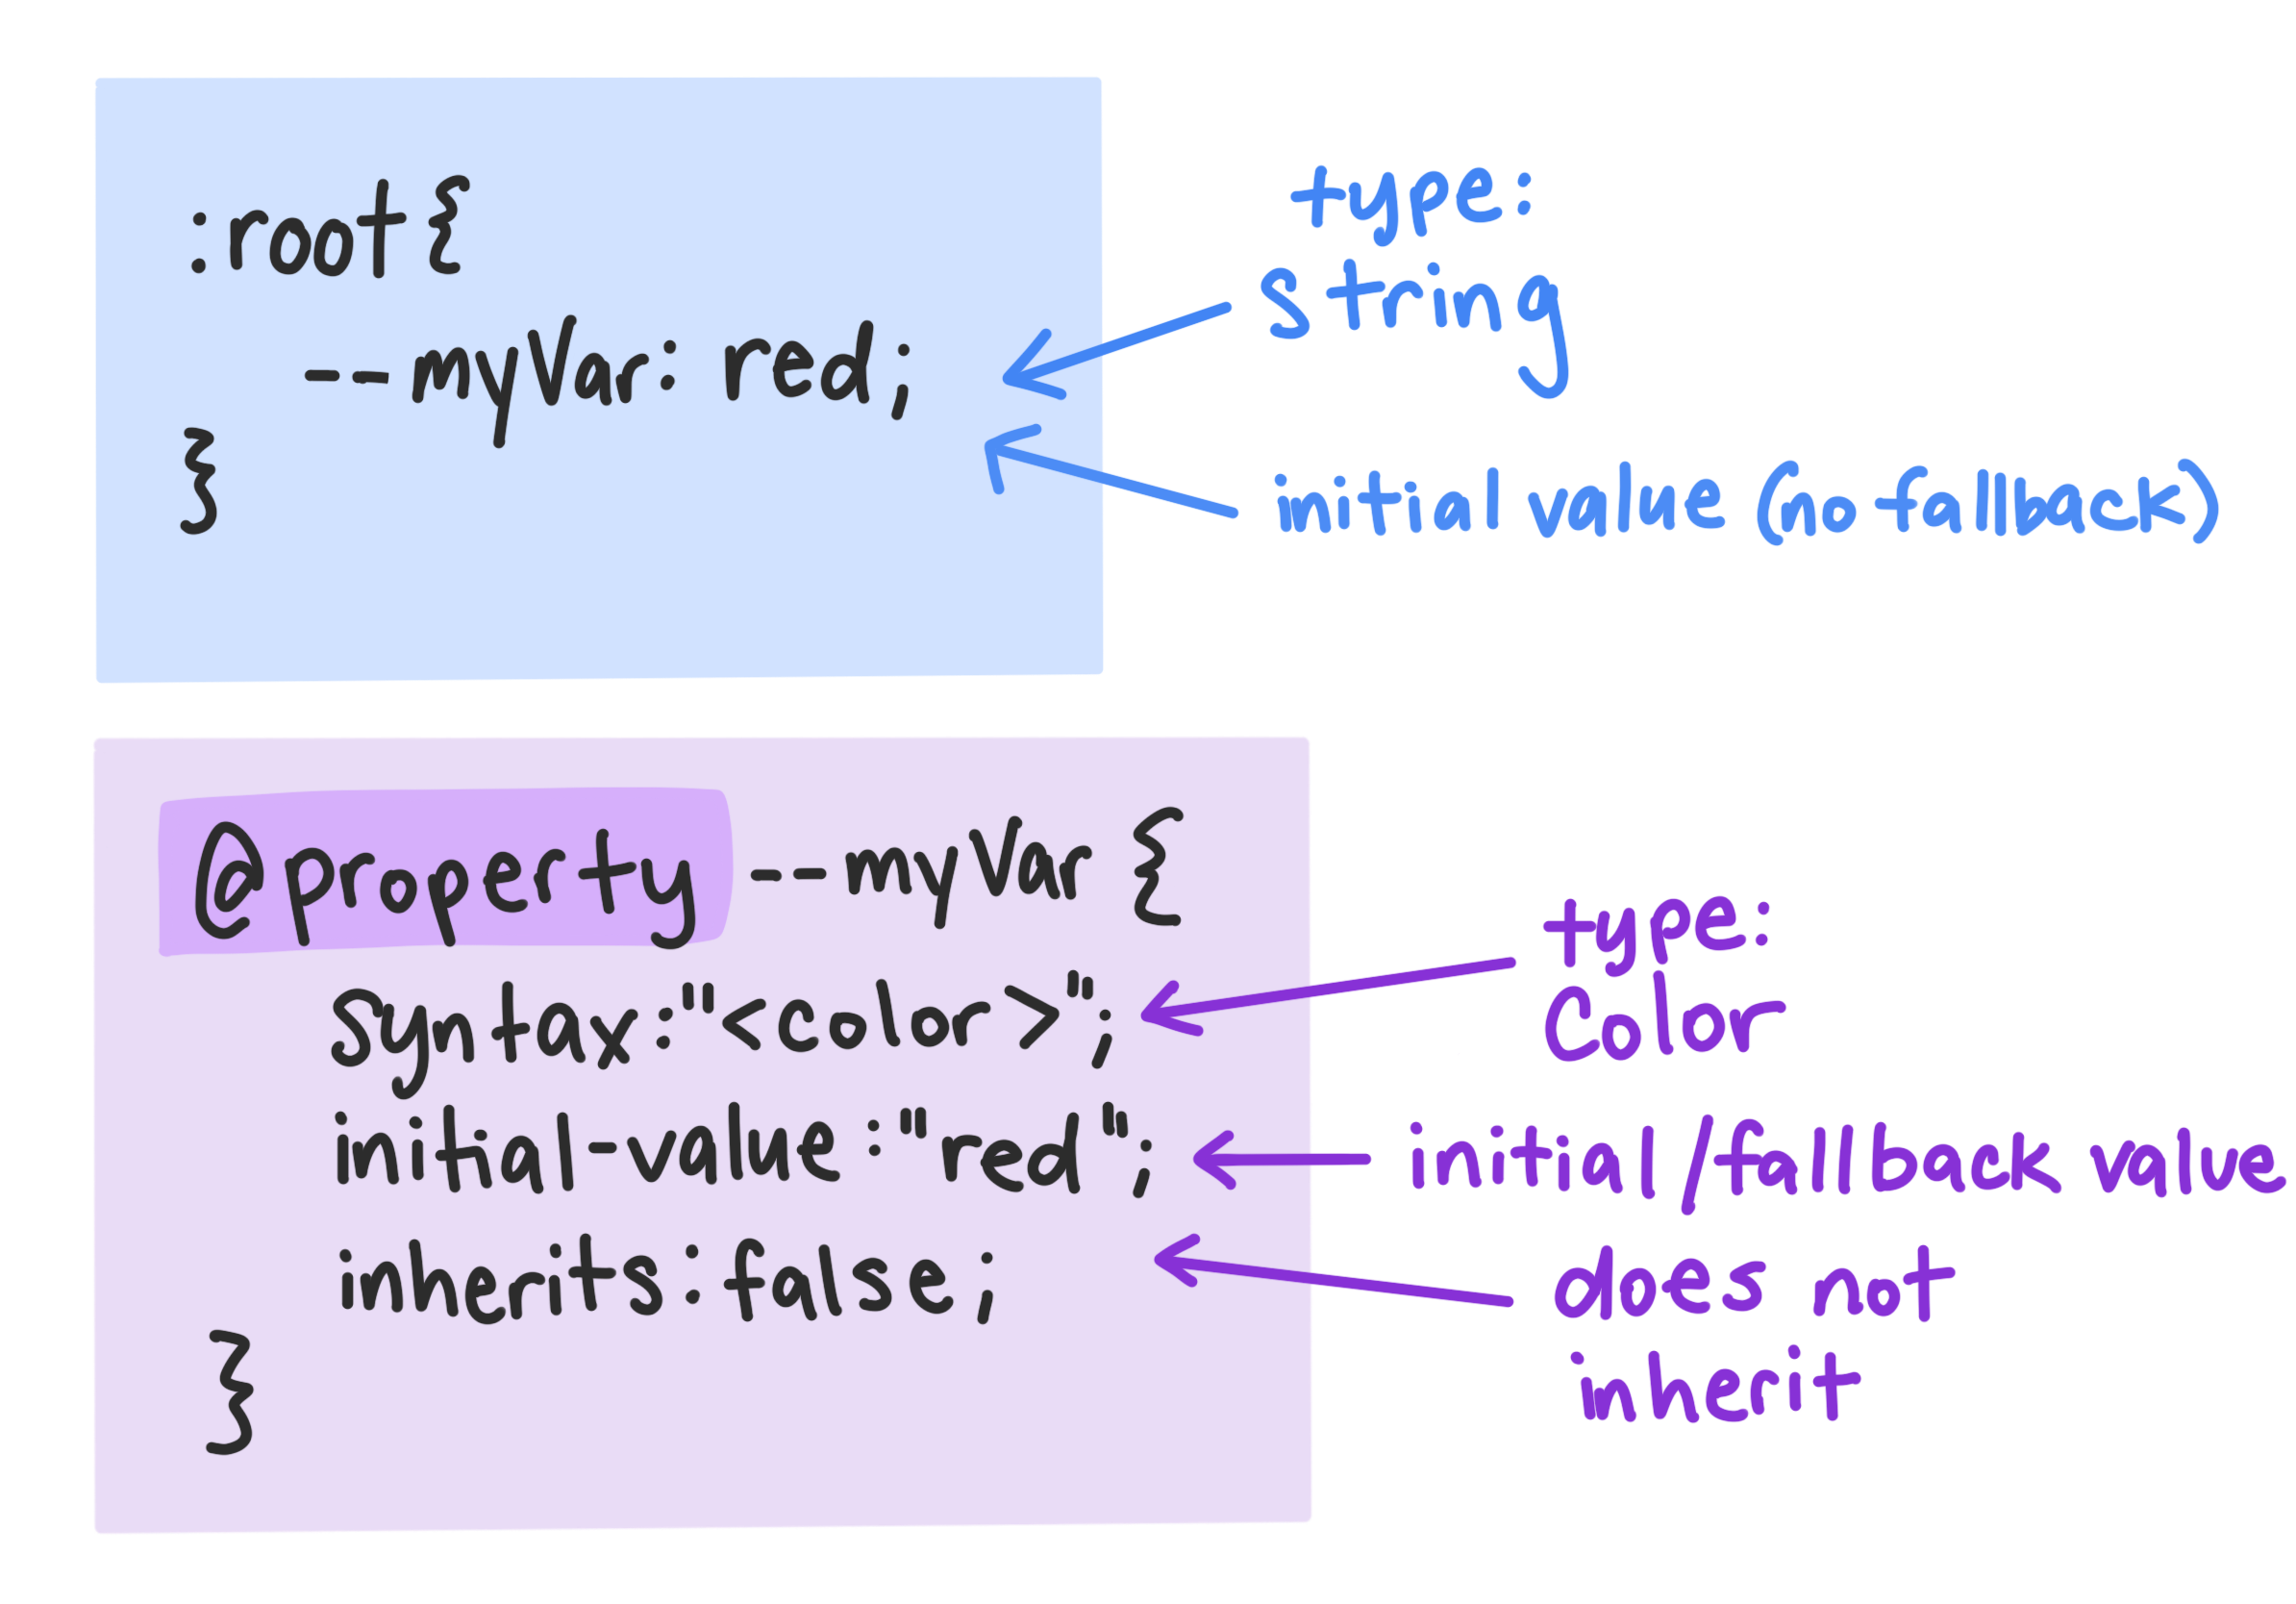 :root{
--myVar: red;
}
type:
String
initial value (no fallback)
@property --myVar {
syntax:"<color>";
initial-value:"red";
inherits:false;
}
type:
Color
initial/fallback value
does not
inherit